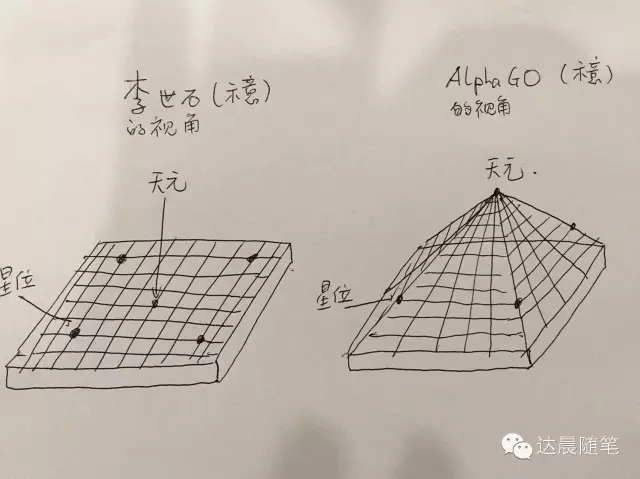 李世石(示意)
的视角
天元
星位
AlphaGO(示意)
的视角
天元.
星位
达晨随笔